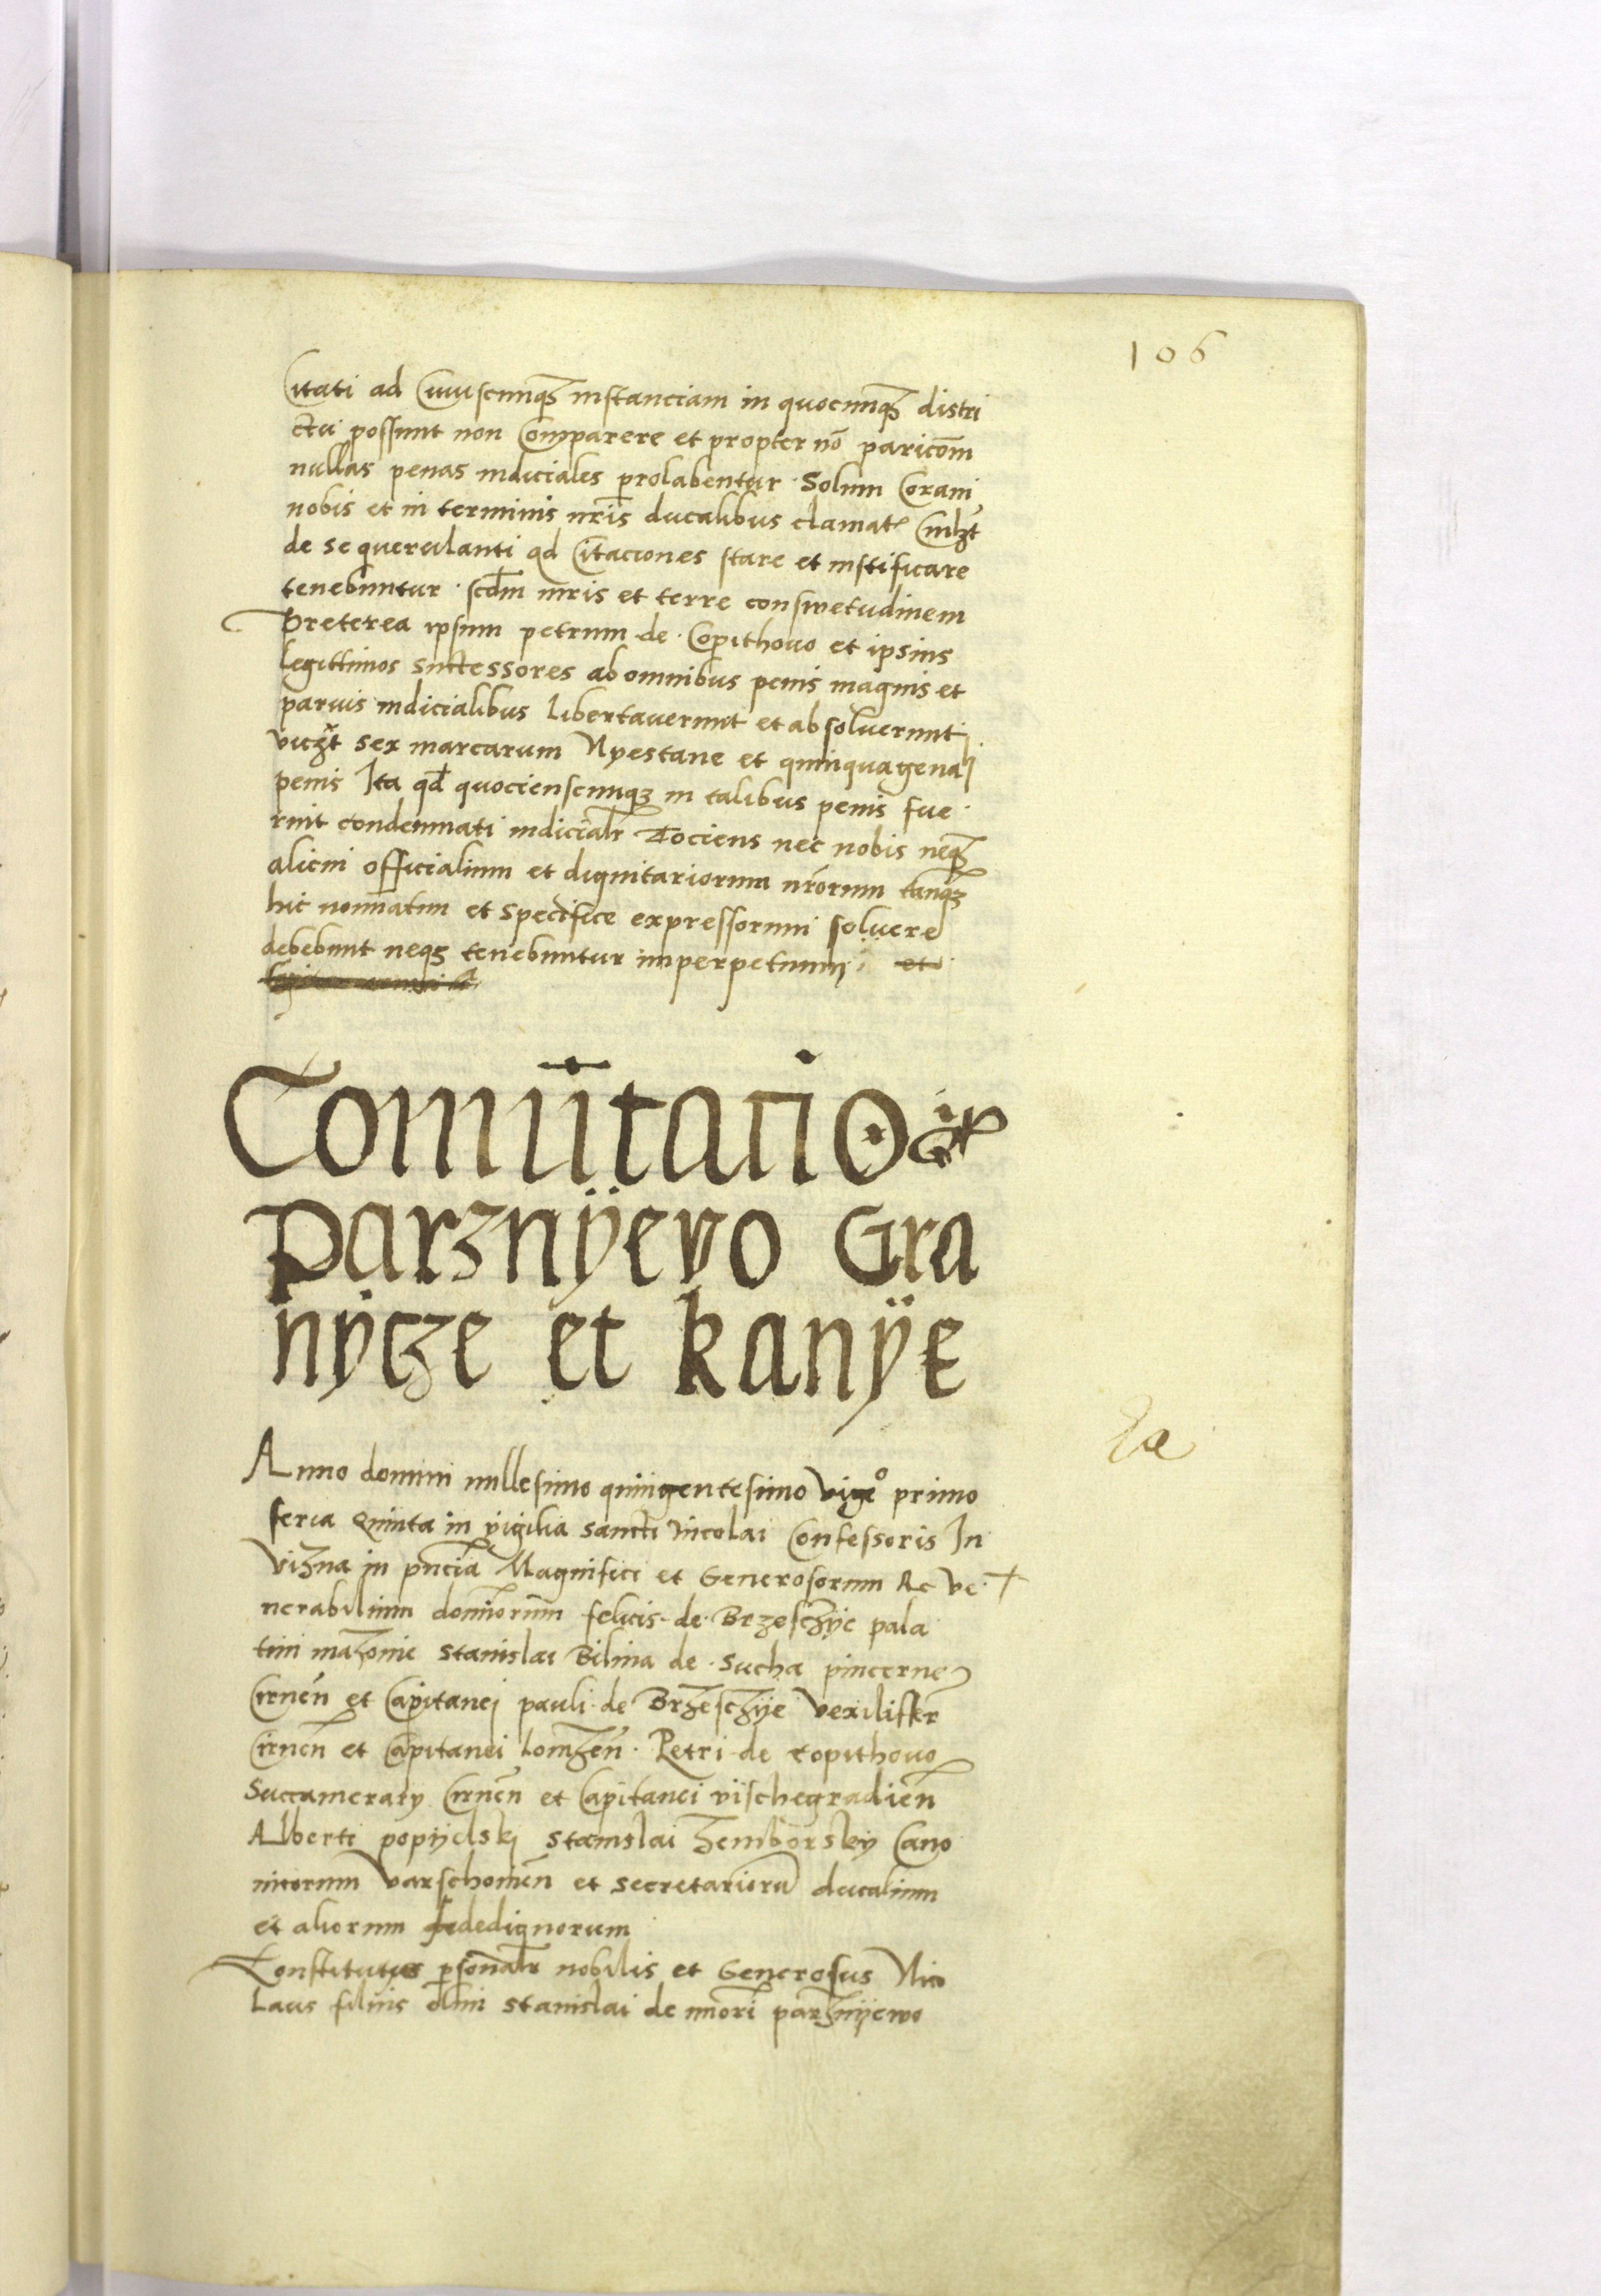 106
Citati ad Cuiuscunq₃ instanciam in quocunq₃ distri
ctu possunt non Comparere et propter nō paricōm
nullas penas iudiciales prolabentur · Solum Coram
nobis et in terminis nr̄is ducalibus clamat₎ Cuil₃t
de se querulanti ad Citaciones stare et iustificare
tenebuntur · scd̄m iuris et terre conswetudinem
Preterea ipsum petrum de · Copithovo et ipsius
legittimos successores ab omnibus penis magnis et
paruis iudicialibus libertauerunt et absoluerunt
vicz₃t sex marcarum Nyestane et quinquagena
penis Ita qd̄ quocienscunq₃ in talibus penis fue
rint condemnati iudicialr Tociens nec nobis neq₃
alicui officialium et dignitariorum nr̄orum tanq₃
hic nominatim et specifice expressorum soluere
debebunt neq₃ tenebuntur imperpetuum et
Comūtacio
parznÿevo Gra
nÿcze et kanÿe
Anno domini millesimo quingentesimo vigᵒ primo
feria Quinta in vigilia sancti Nicolai Confessoris In
Vizna in pn̄cia Magnifici et Generosorum Ac Ve
nerabilium dominorum felicis de Brzesczÿe pala
tini mazouie Stanislai Bilina de Sucha pincerne
Cirnen̄ et Capitanei pauli de Brzesczÿe Vexiliffer̄
Cirnen̄ et Capitanei lomzen̄ · Petri de copithovo
Succamerary Cirnen̄ et Capitanei vischegradien̄
Alberti popÿelskj Stanislai Zemborsky Cano
nicorum Varschouien̄ et Secretariorū ducalium
et aliorum fidedignorum
Constitutus personalr nobilis et Generosus Nico
laus filius olim Stanislai de minori parznÿewo